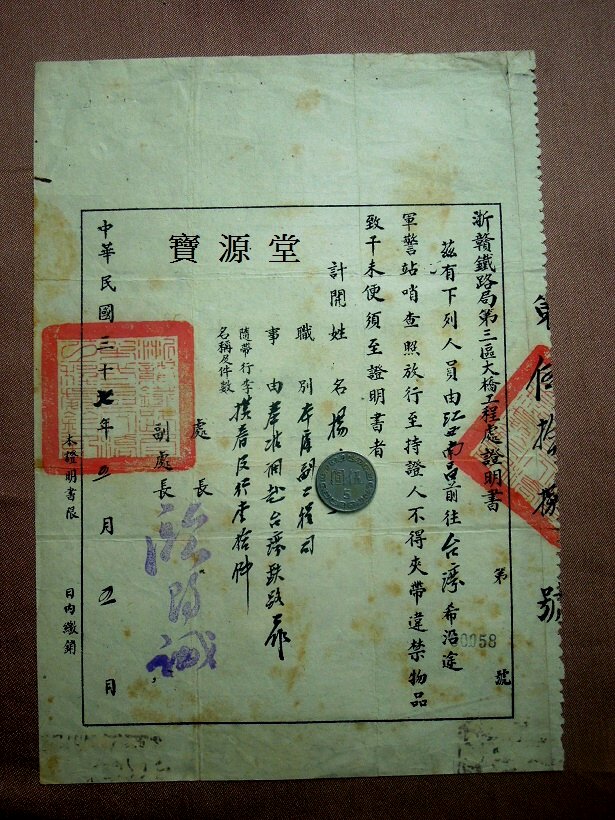 浙贛鐵路局第三區大橋工程處證明書
第 0058 號
茲有下列人員由江西南昌前往台灣希沿途
軍警站哨查照放行至持證人不得夾帶違禁物品
致干未便須至證明書者
計開姓名楊
職別本處副工程司
事由奉派調赴台灣鐵路
隨帶行李
名稱及件數
處長
副處長
中華民國三十七年五月五日
本證明書限 日內繳銷
寶源堂
伍圓
5
號